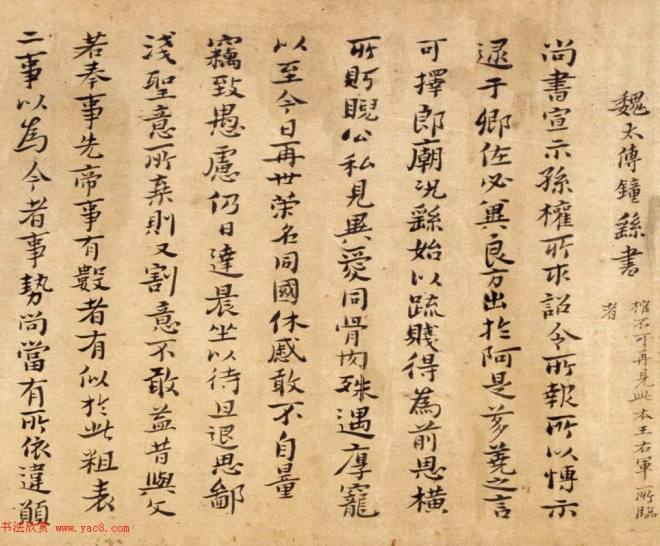 魏太傅鍾繇書
搉不可再見此本王右軍所臨
者
尚書宣示孫權所求詔令所報所以博示
逮于卿佐必冀良方出於阿是芻蕘之言
可擇郎廟況繇始以疏賤得為前恩橫
所眄睨公私見異愛同骨肉殊遇厚寵
以至今日再世榮名同國休慼敢不自量
竊致愚慮仍日達晨坐以待旦退思鄙
淺聖意所棄則又割意不敢益昔與文
若奉事先帝事有數者有似於此粗表
二事以為今者事勢尚當有所依違願
书法欣赏
www.yac8.com